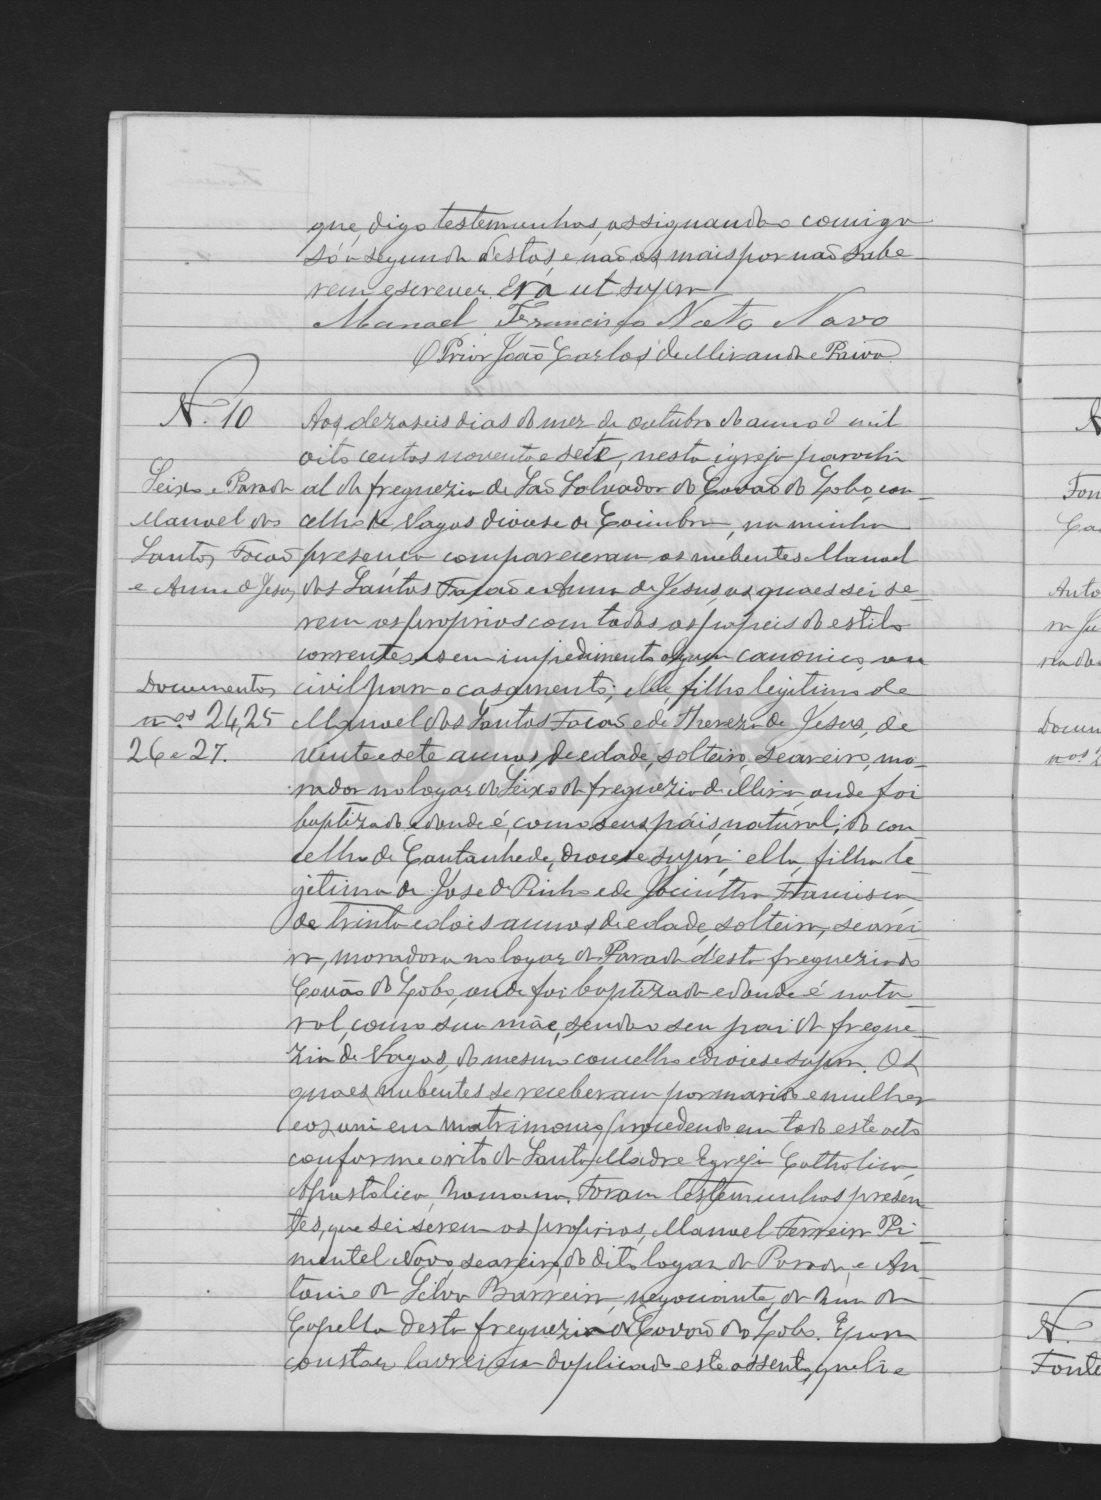 que, digo testemunhas, assignando comigo
só a segunda d'estas e não as mais por não sabe-
rem escrever. Era ut supra
Manoel Francisco Nato Novo
O Prior João Carlos de Miranda e Paiva
N.º 10
Seixo e Parada
Manoel dos
Santos Facão
e Anna de Jesus
Documentos
n.os 24, 25
26 e 27.
Aos dezaseis dias do mez de outubro do anno de mil
oito centos noventa e sete, nesta igreja parochi
al da freguezia de São Salvador do Covão do Lobo, con-
celho de Vagos diocese de Coimbra, na minha
presença compareceram os nubentes Manoel
dos Santos Facão e Anna de Jesus, os quaes sei se-
rem os proprios com todos os papeis do estilo
correntes e sem impedimento algum canonico ou
civil para o casamento; elle, filho legitimo de
Manoel dos Santos Facão e de Thereza de Jesus, de
vinte e sete annos, de edade, solteiro, seareiro, mo-
rador no logar do Seixo da freguezia de Mira, onde foi
baptizado e donde é, como seus páis, natural; do con-
celho de Cantanhede, diocese supra: ella, filha le-
gitima de José de Pinho e de Jacintha Francisca
de trinta e dois annos de edade, solteira, searei-
ra, moradora no logar da Parada d'esta freguezia do
Covão do Lobo, onde foi baptizada e donde é natu-
ral, como sua mãe, sendo o seu pai da fregue-
zia de Vagos, do mesmo concelho e diocese supra. Os
quaes nubentes se receberam por marido e mulher
e os uni em matrimonio, procedendo em todo este acto
conforme o rito da Santa Madre Egreja Catholica
Apostolica Romana. Foram testemunhas presen-
tes, que sei serem os proprios, Manoel Ferreira Pi-
mentel Novo, seareiro, do dito logar da Parada, e An-
tonio da Silva Barreira, negociante, da Rua da
Capella desta freguezia do Covão do Lobo. E para
constar lavrei em duplicado este assento, que li e
N
Fon
Ca
Anto
ra Ju
Docum
n.os 2
N.
Fonte